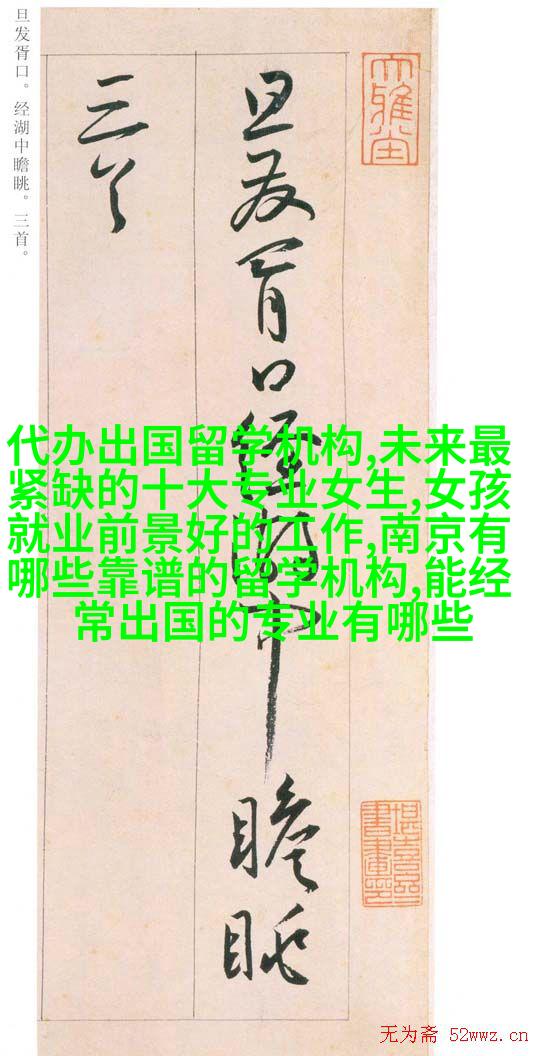 旦发胥口。经湖中瞻眺。三首。
旦发胥口经湖中瞻眺
三首
大雅堂
代办出国留学机构,未来最
紧缺的十大专业女生,女孩
就业前景好的工作,南京有
哪些靠谱的留学机构,能经
常出国的专业有哪些
无为斋 52wwz.cn